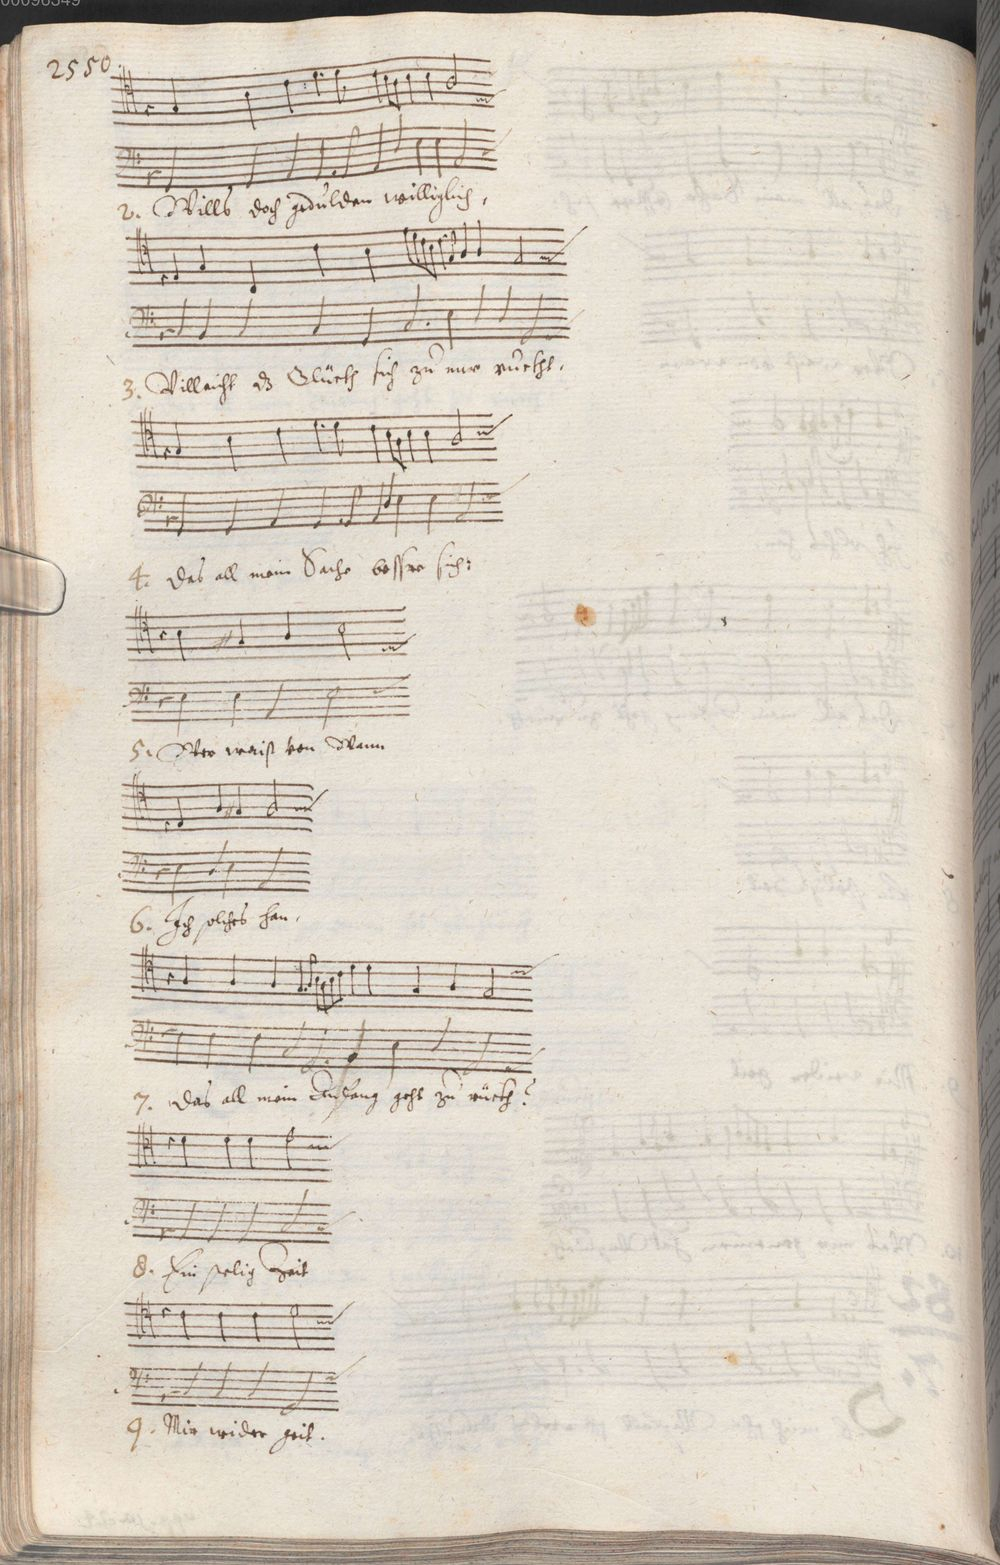 00098549
2550.
2. Wills doch gedulden williglich,
3. Villeicht dz Glückh sich zu mir ruckht,
4. Das all mein Sache bessre sich:
5. Wer waist von Wann
6. Ich solches han,
7. Das all mein Anfang geht zu rückh?
8. Ein selig Zeit
9. Mir wider geit.